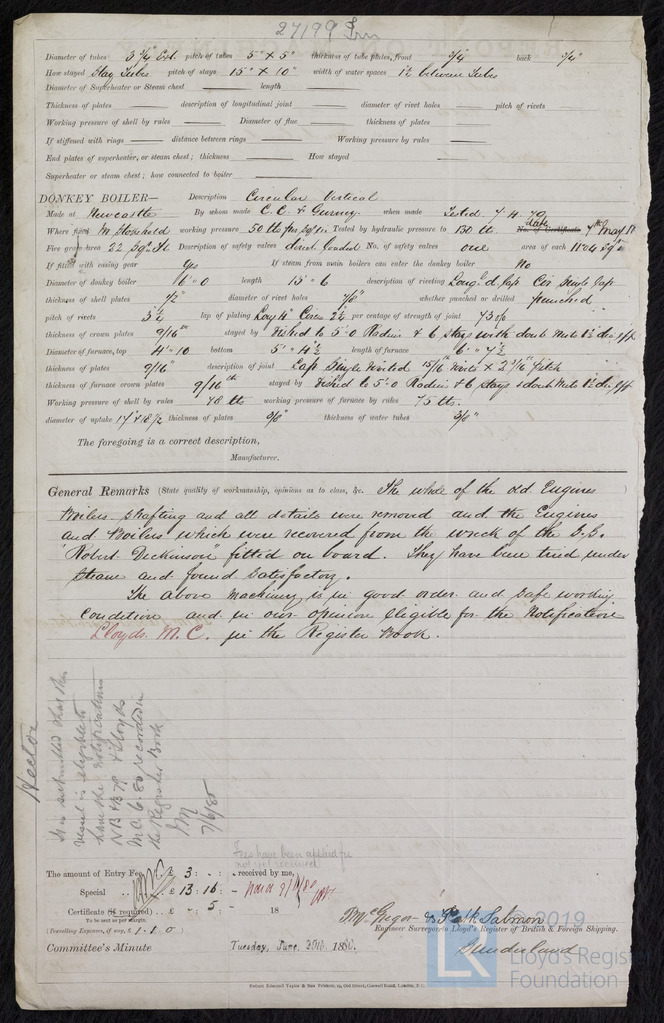 27199 Irn
Diameter of tubes 3 3/4" Ext. pitch of tubes 5" x 5" thickness of tube plates, front 3/4" back 3/4"
How stayed Stay Tubes pitch of stays 15" x 10" width of water spaces between Tubes
Diameter of Superheater or Steam chest length
Thickness of plates description of longitudinal joint diameter of rivet holes pitch of rivets
Working pressure of shell by rules Diameter of flue thickness of plates
If stiffened with rings distance between rings Working pressure by rules
End plates of superheater, or steam chest; thickness How stayed
Superheater or steam chest; how connected to boiler
DONKEY BOILER— Description Circular Vertical
Made at Newcastle By whom made C. C. & Gurney. when made Tested 7.4.79
Where fixed M. Stokehold working pressure 50 lbs per sq. in. Tested by hydraulic pressure to 130 lbs. No. of Certificate date 7th May
Fire grate area 22 Sq. ft. Description of safety valves direct loaded No. of safety valves one area of each 11.04 sq. in
If fitted with easing gear Yes If steam from main boilers can enter the donkey boiler No
Diameter of donkey boiler 6'.0 length 13'.6 description of riveting Long. d. Lap Cir Single Lap
thickness of shell plates 1/2" diameter of rivet holes 7/8" whether punched or drilled punched
pitch of rivets 3 1/2 lap of plating Long 4" Circum 2 1/2 per centage of strength of joint 73 o/o
thickness of crown plates 9/16" stayed by Dished to 5'.0 Radius & 6 stays with doub nuts 1 1/2 dia eff
Diameter of furnace, top 4'.10 bottom 5'.4 1/2 length of furnace 6'.7 1/2
thickness of plates 9/16" description of joint Lap Single riveted 15/16 rivets x 2 3/16 pitch
thickness of furnace crown plates 9/16th stayed by Dished to 5'.0 Radius & 6 stays & doub nuts 1 1/2 dia eff
Working pressure of shell by rules 78 lbs working pressure of furnace by rules 75 lbs.
diameter of uptake thickness of plates 3/8" thickness of water tubes 3/8"
The foregoing is a correct description,
Manufacturer.
General Remarks (State quality of workmanship, opinions as to class, &c. The whole of the old Engines )
Boilers shafting and all details were removed and the Engines
and Boilers which were recovered from the wreck of the S.S.
"Robert Dickinson" fitted on board. They have been tried under
steam and found satisfactory.
The above machinery is in good order and safe working
condition and in our opinion eligible for the Notification
Lloyds M.C. in the Register Book.
Hector
It is submitted that this
vessel is eligible to
have the notifications
NB & B 79 & Lloyds
M.C. 6.80 recorded in
the Register Book
7/6/80
Fees have been applied for
not yet received
The amount of Entry Fee £ 3 : - : - received by me,
Special £ 13 : 16 : -
Certificate (if required) £ - : 5 : - 18
To be sent as per margin.
(Travelling Expenses, if any, £ 1.1.0
T. McGregor & Park Salmon
Engineer Surveyors to Lloyd's Register of British & Foreign Shipping.
Sunderland
Committee's Minute Tuesday, June, 1880.
Robert Edmund Taylor & Son Printers, 19, Old Street, Goswell Road, London, E.C.
2019
LR
Lloyd's Register
Foundation